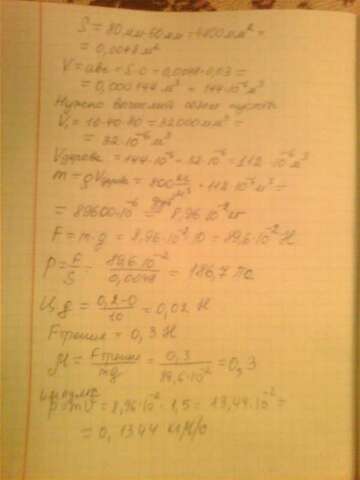 S = 80мм·60мм = 4800мм² =
= 0,0048 м²
V = abc = S·0 = 0,0048·0,03 =
= 0,000144 м³ = 144·10⁻⁶ м³
Нужно
V₁ = 10·40·80 = 32000мм³ =
= 32·10⁻⁶ м³
Vдерева = 144·10⁻⁶ - 32·10⁻⁶ = 112·10⁻⁶ м³
m = ρVдерева = 800 кг/м³ · 112·10⁻⁶ м³ =
= 89600·10⁻⁶ = 8,96·10⁻² кг
F = m·g = 8,96·10⁻²·10 = 89,6·10⁻² Н
P = F/S = 89,6·10⁻²/0,0048 = 186,7 Па
Ц.д = 0,2-0/10 = 0,02 Н
Fтрения = 0,3 Н
μ = Fтрения/mg = 0,3/89,6·10⁻² = 0,3
импульс
p = mv = 8,96·10⁻² · 1,5 = 13,44·10⁻² =
= 0,1344 кг м/с